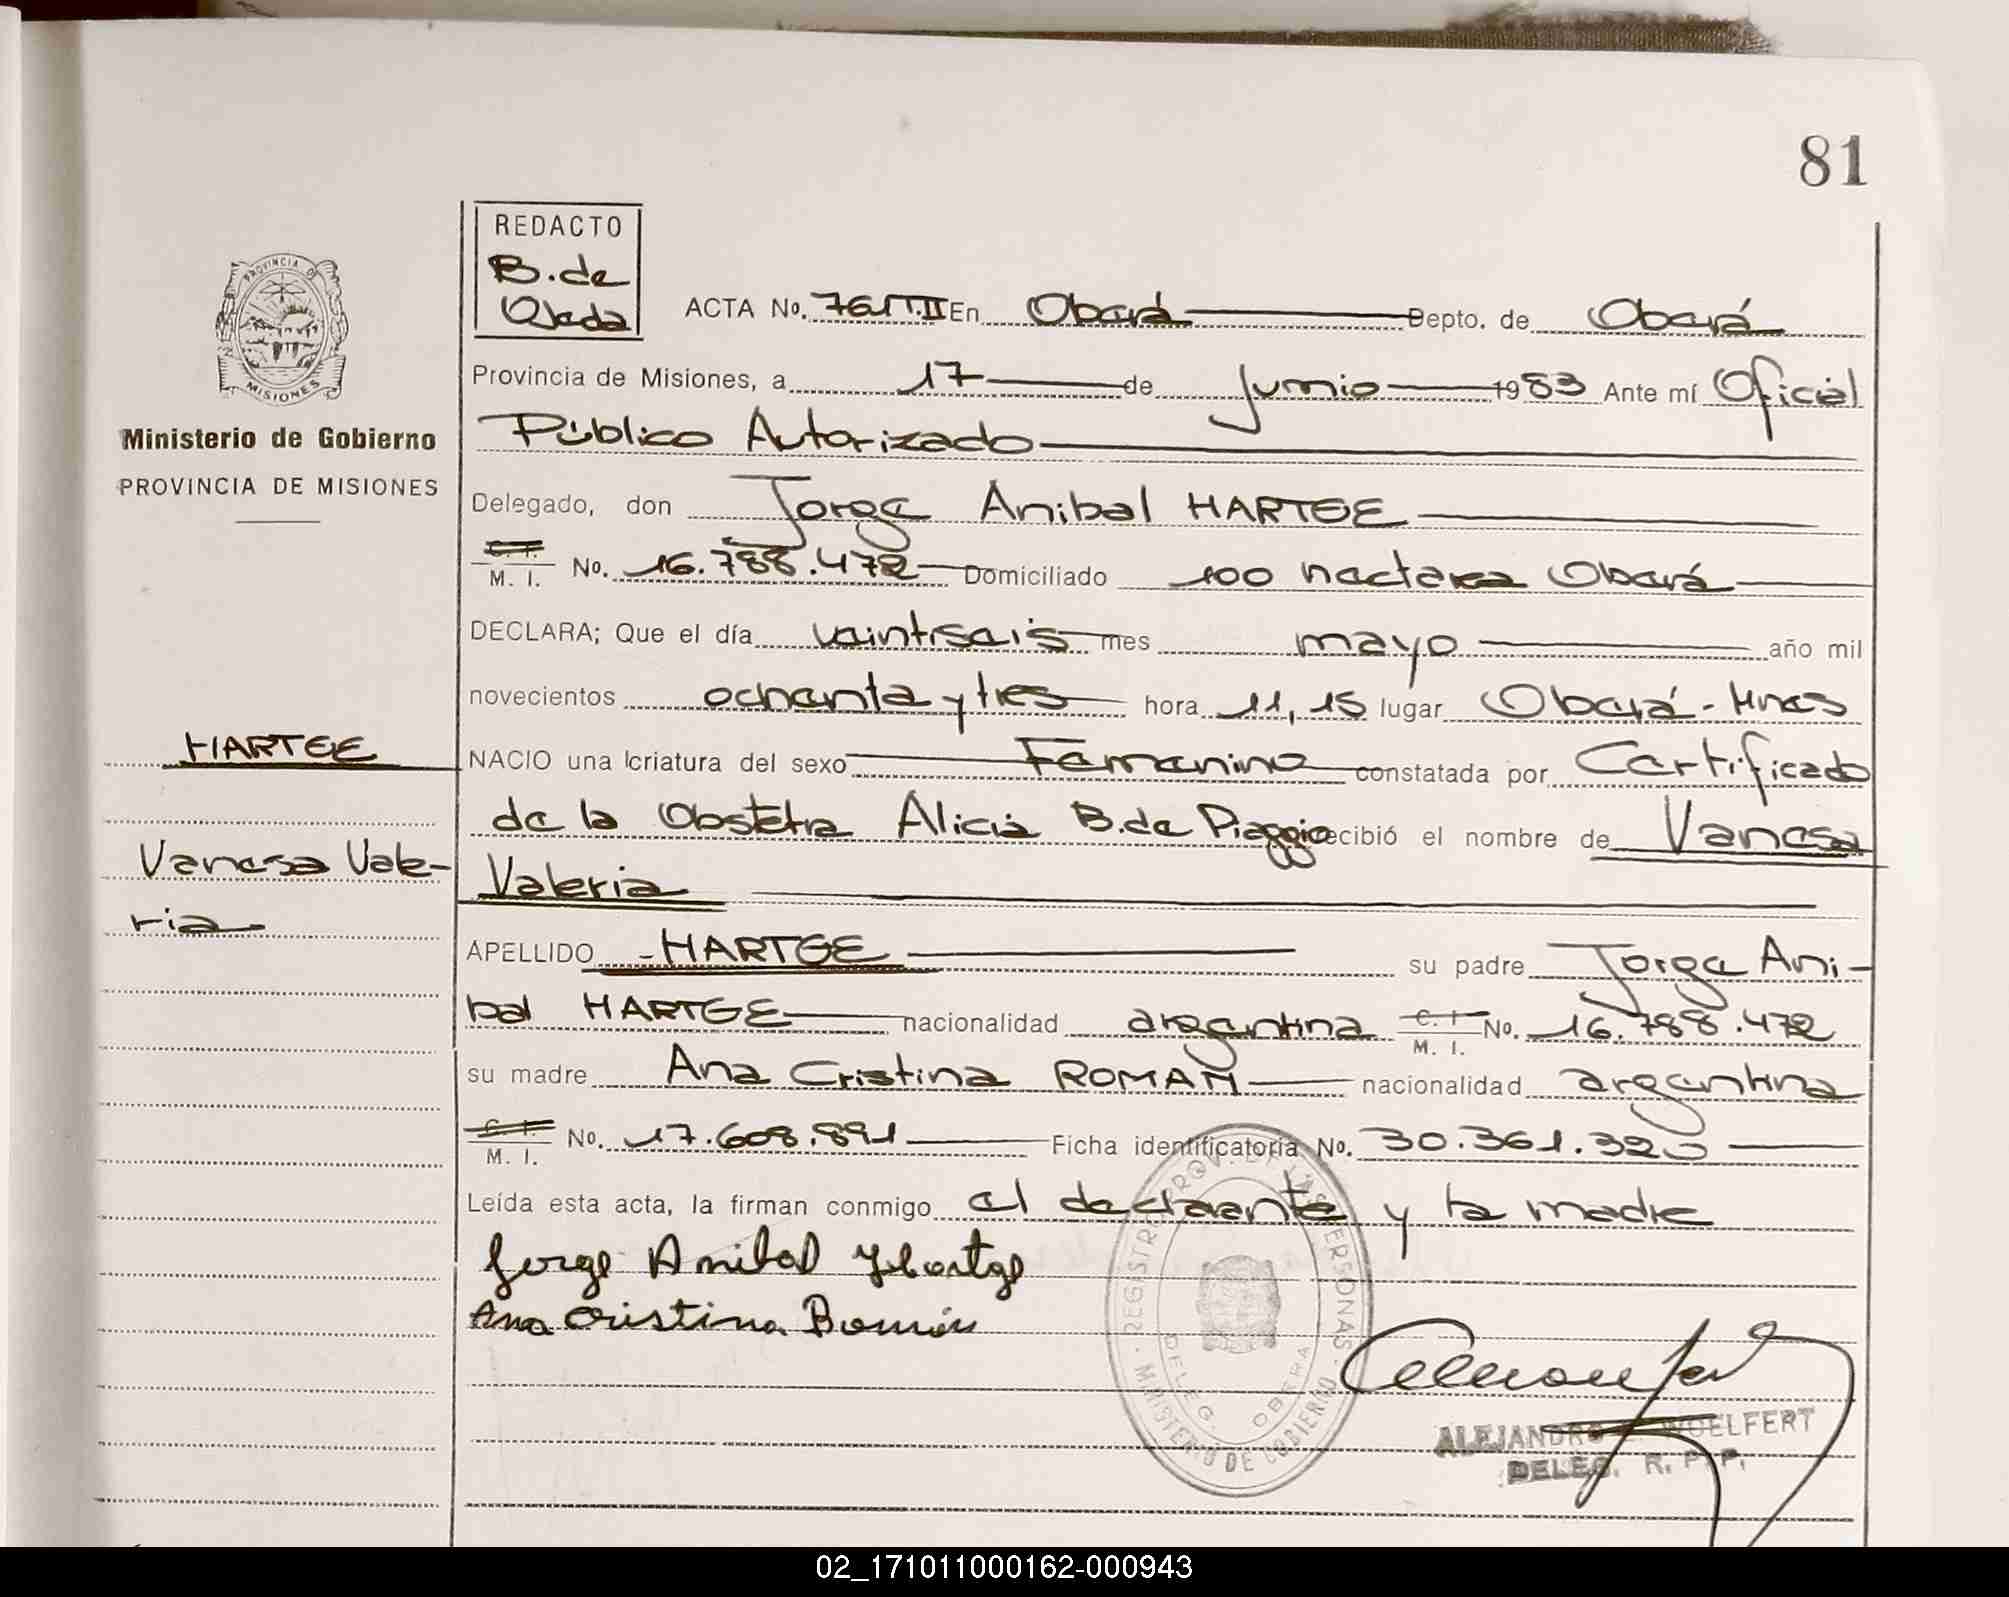 81
REDACTO
B. de
Ojeda
PROVINCIA DE
MISIONES
Ministerio de Gobierno
PROVINCIA DE MISIONES
ACTA No. 761 T.II En Oberá Depto. de Oberá
Provincia de Misiones, a 17 de Junio 1983 Ante mí Oficial
Público Autorizado
Delegado, don Jorge Anibal HARTGE
C. I.
M. I. No. 16.788.472 Domiciliado 100 hectarea Oberá
DECLARA; Que el día veintiseis mes mayo año mil
novecientos ochenta y tres hora 11,15 lugar Oberá - Mnes
HARTGE
NACIO una criatura del sexo Femenino constatada por Certificado
de la Obstetra Alicia B. de Piaggio recibió el nombre de Vanesa
Vanesa Vale-
ria
Valeria
APELLIDO - HARTGE su padre Jorge Ani-
bal HARTGE nacionalidad argentina C. I.
M. I. No. 16.788.472
su madre Ana Cristina ROMAN nacionalidad argentina
C. I.
M. I. No. 17.608.891 Ficha identificatoria No. 30.361.323
Leída esta acta, la firman conmigo el declarante y la madre
Jorge Anibal Hartge
Ana Cristina Román
REGISTRO PROV. DE LAS PERSONAS
MINISTERIO DE GOBIERNO
DELEG. OBERA
ALEJANDRO WOELFERT
DELEG. R. P. P.
02_171011000162-000943